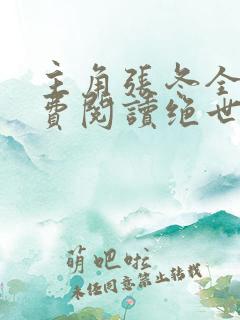 主角張冬全
費閱讀绝世
萌吧啦
未经同意禁止转载